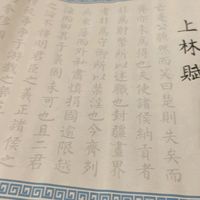 上林賦
亡是公听然而笑曰楚則失矣而
齊亦未為得也夫使諸侯納貢者
非為財幣所以述職也封疆畫界
者非為守禦所以禁淫也今齊列
為東藩而外私肅慎捐國逾限越
海而田其於義固未可也且二君
之論不務明君臣之義正諸侯之